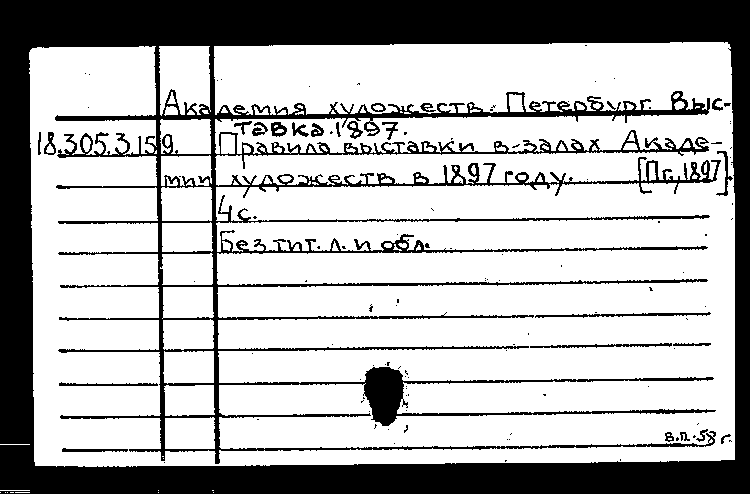 Академия художеств. Петербург. Выс-
тавка. 1897.
18.305.3.159. Правила выставки в залах Акаде-
мии художеств в 1897 году. [Пг., 1897].
4 с.
Без тит. л. и обл.
в.п. 58 г.